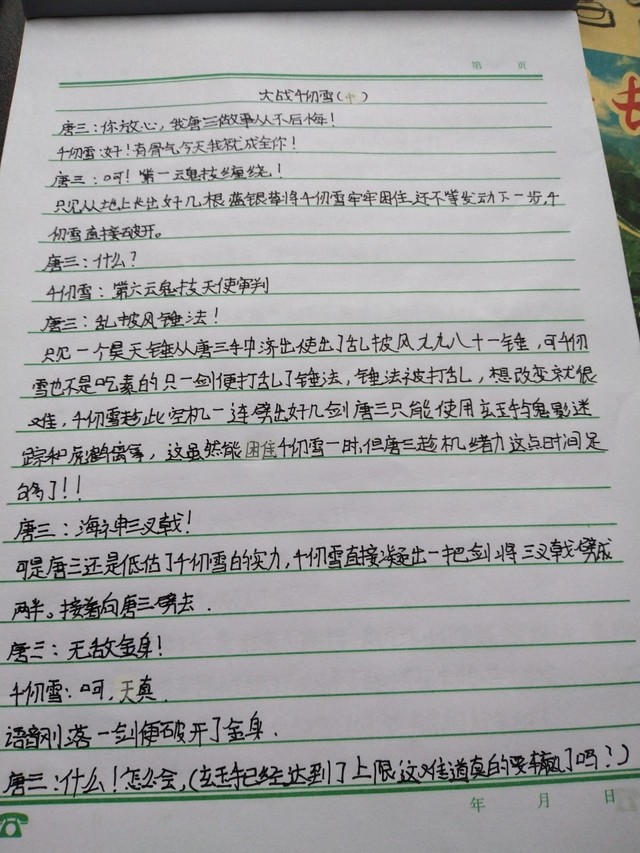 第 页
大战千仞雪(中)
唐三:你放心,我唐三做事从不后悔!
千仞雪:好!有骨气今天我就成全你!
唐三:呵!第一魂技缠绕!
只见从地上长出好几根蓝银草将千仞雪牢牢困住,还不等发动下一步,千
仞雪直接破开。
唐三:什么?
千仞雪:第六魂技天使审判
唐三:乱披风锤法!
只见一个昊天锤从唐三手中济出使出了乱披风九九八十一锤,可千仞
雪也不是吃素的只一剑便打乱了锤法,锤法被打乱,想改变就很
难,千仞雪趁此空机一连劈出好几剑唐三只能使用玄玉手鬼影迷
踪和虎鹤,这虽然能困住千仞雪一时,但唐三趁机绪力这点时间足
够了!!
唐三:海神三叉戟!
可是唐三还是低估了千仞雪的实力,千仞雪直接凝出一把剑将三叉戟劈成
两半。接着向唐三劈去.
唐三:无敌金身!
千仞雪:呵,天真.
语音刚落一剑便破开了金身.
唐三:什么!怎么会,(玄玉手已经达到了上限这难道真的要输了吗?)
年 月 日